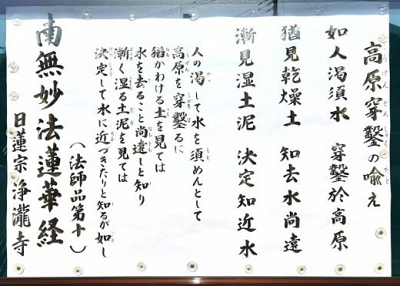 高原穿鑿の喩え
如人渇須水 穿鑿於高原
猶見乾燥土 知去水尚遠
漸見湿土泥 決定知近水
人の渇して水を須めんとして
高原を穿鑿るに
猶かわける土を見ては
水を去ること尚遠しと知り
漸く湿る土泥を見ては
決定して水に近づきたりと知るが如し
(法師品第十)
南無妙法蓮華経
日蓮宗 浄瀧寺